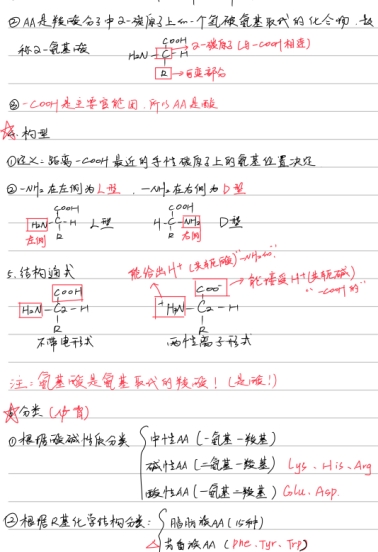 ②AA是羧酸分子中2-碳原子上的一个氢被氨基取代的化合物,故
称2-氨基酸
COOH
H₂N-C-H → 2-碳原子(与-COOH相连)
R → 可变部分
③-COOH是主要官能团,所以AA是酸
☆4.构型
①定义:距离-COOH最近的手性碳原子上的氨基位置决定
②-NH₂在左侧为L型,-NH₂在右侧为D型
COOH COOH
H₂N-C-H L型 H-C-NH₂ D型
左侧 R R 右侧
5.结构通式 能给出H⁺(共轭酸)"-NH₂的"
COOH COO⁻ → 能接受H⁺(共轭碱)
H₂N-C₂-H ⁺H₃N-C₂-H "-COOH的"
R R
不带电形式 两性离子形式
注:氨基酸是氨基取代的羧酸!(是酸!)
☆分类(必背)
①根据酸碱性质分类 中性AA(一氨基一羧基)
碱性AA(二氨基一羧基) Lys、His、Arg
酸性AA(一氨基二羧基) Glu、Asp.
②根据R基化学结构分类: 脂肪族AA(15种)
△芳香族AA(Phe、Tyr、Trp)